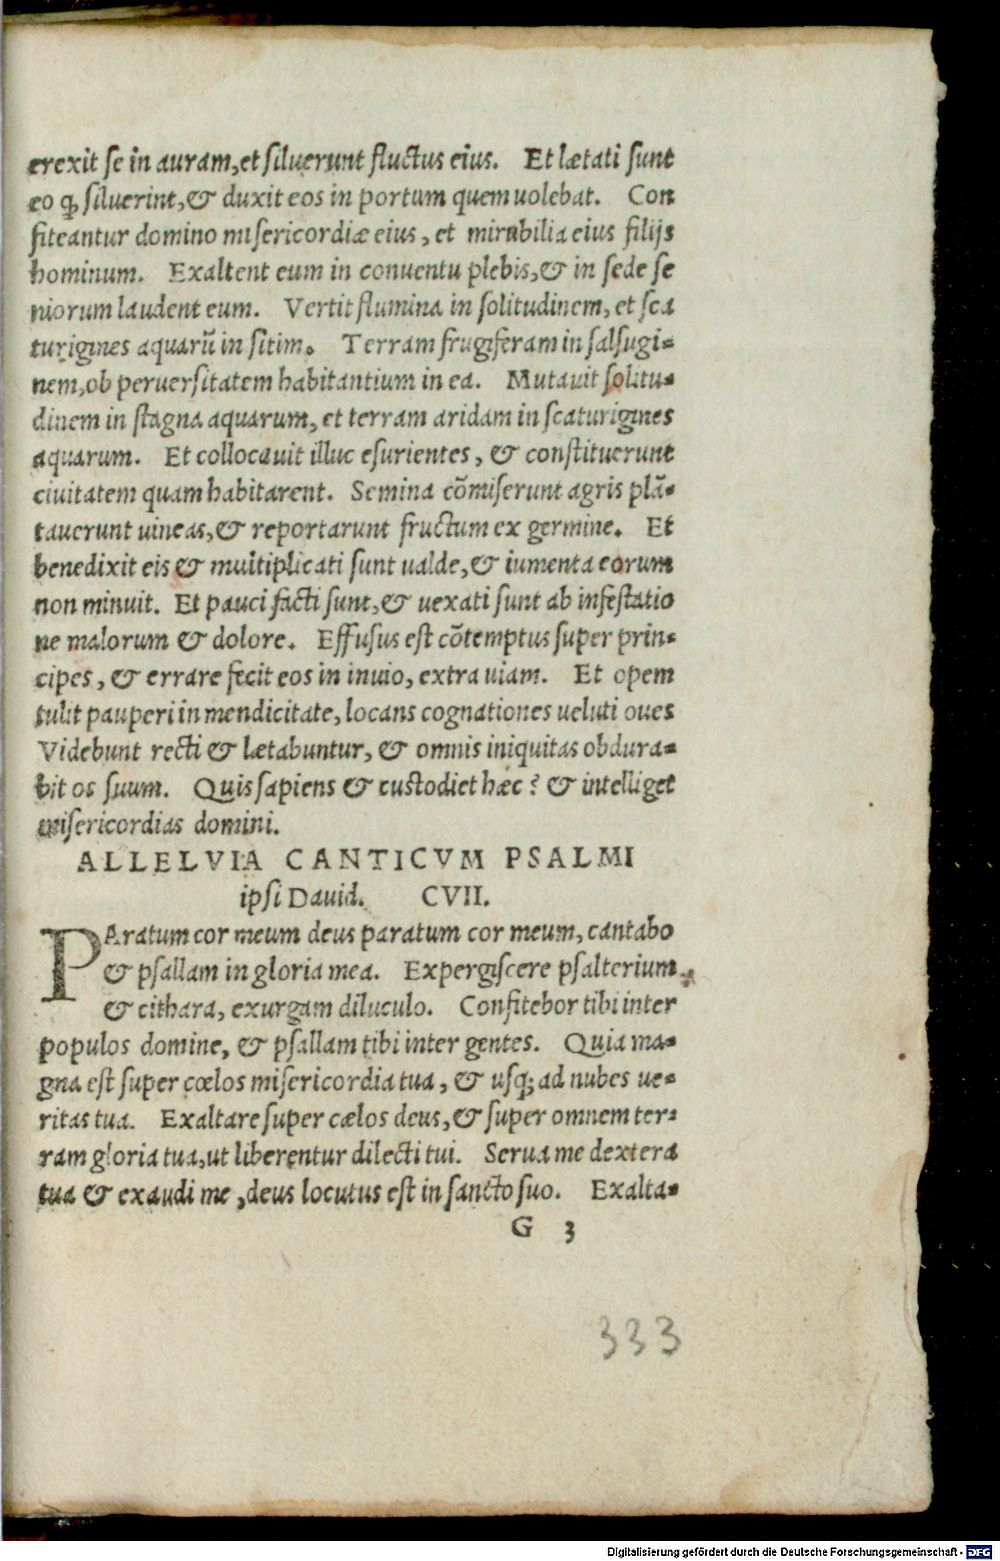 erexit se in auram, et siluerunt fluctus eius. Et lætati sunt
eo ꝙ siluerint, & duxit eos in portum quem uolebat. Con
fiteantur domino misericordiæ eius, et mirabilia eius filijs
hominum. Exaltent eum in conuentu plebis, & in sede se
niorum laudent eum. Vertit flumina in solitudinem, et sca
turigines aquarũ in sitim. Terram frugiferam in salsugi-
nem, ob peruersitatem habitantium in ea. Mutauit solitu-
dinem in stagna aquarum, et terram aridam in scaturigines
aquarum. Et collocauit illuc esurientes, & constituerunt
ciuitatem quam habitarent. Semina cõmiserunt agris plã-
tauerunt uineas, & reportarunt fructum ex germine. Et
benedixit eis & multiplicati sunt ualde, & iumenta eorum
non minuit. Et pauci facti sunt, & uexati sunt ab infestatio
ne malorum & dolore. Effusus est cõtemptus super prin-
cipes, & errare fecit eos in inuio, extra uiam. Et opem
tulit pauperi in mendicitate, locans cognationes ueluti oues
Videbunt recti & lætabuntur, & omnis iniquitas obdura-
bit os suum. Quis sapiens & custodiet hæc? & intelliget
misericordias domini.
ALLELVIA CANTICVM PSALMI
ipsi Dauid. CVII.
PAratum cor meum deus paratum cor meum, cantabo
& psallam in gloria mea. Expergiscere psalterium
& cithara, exurgam diluculo. Confitebor tibi inter
populos domine, & psallam tibi inter gentes. Quia ma-
gna est super cœlos misericordia tua, & usq; ad nubes ue-
ritas tua. Exaltare super cælos deus, & super omnem ter-
ram gloria tua, ut liberentur dilecti tui. Serua me dextera
tua & exaudi me, deus locutus est in sancto suo. Exalta-
G 3
333
Digitalisierung gefördert durch die Deutsche Forschungsgemeinschaft - DFG